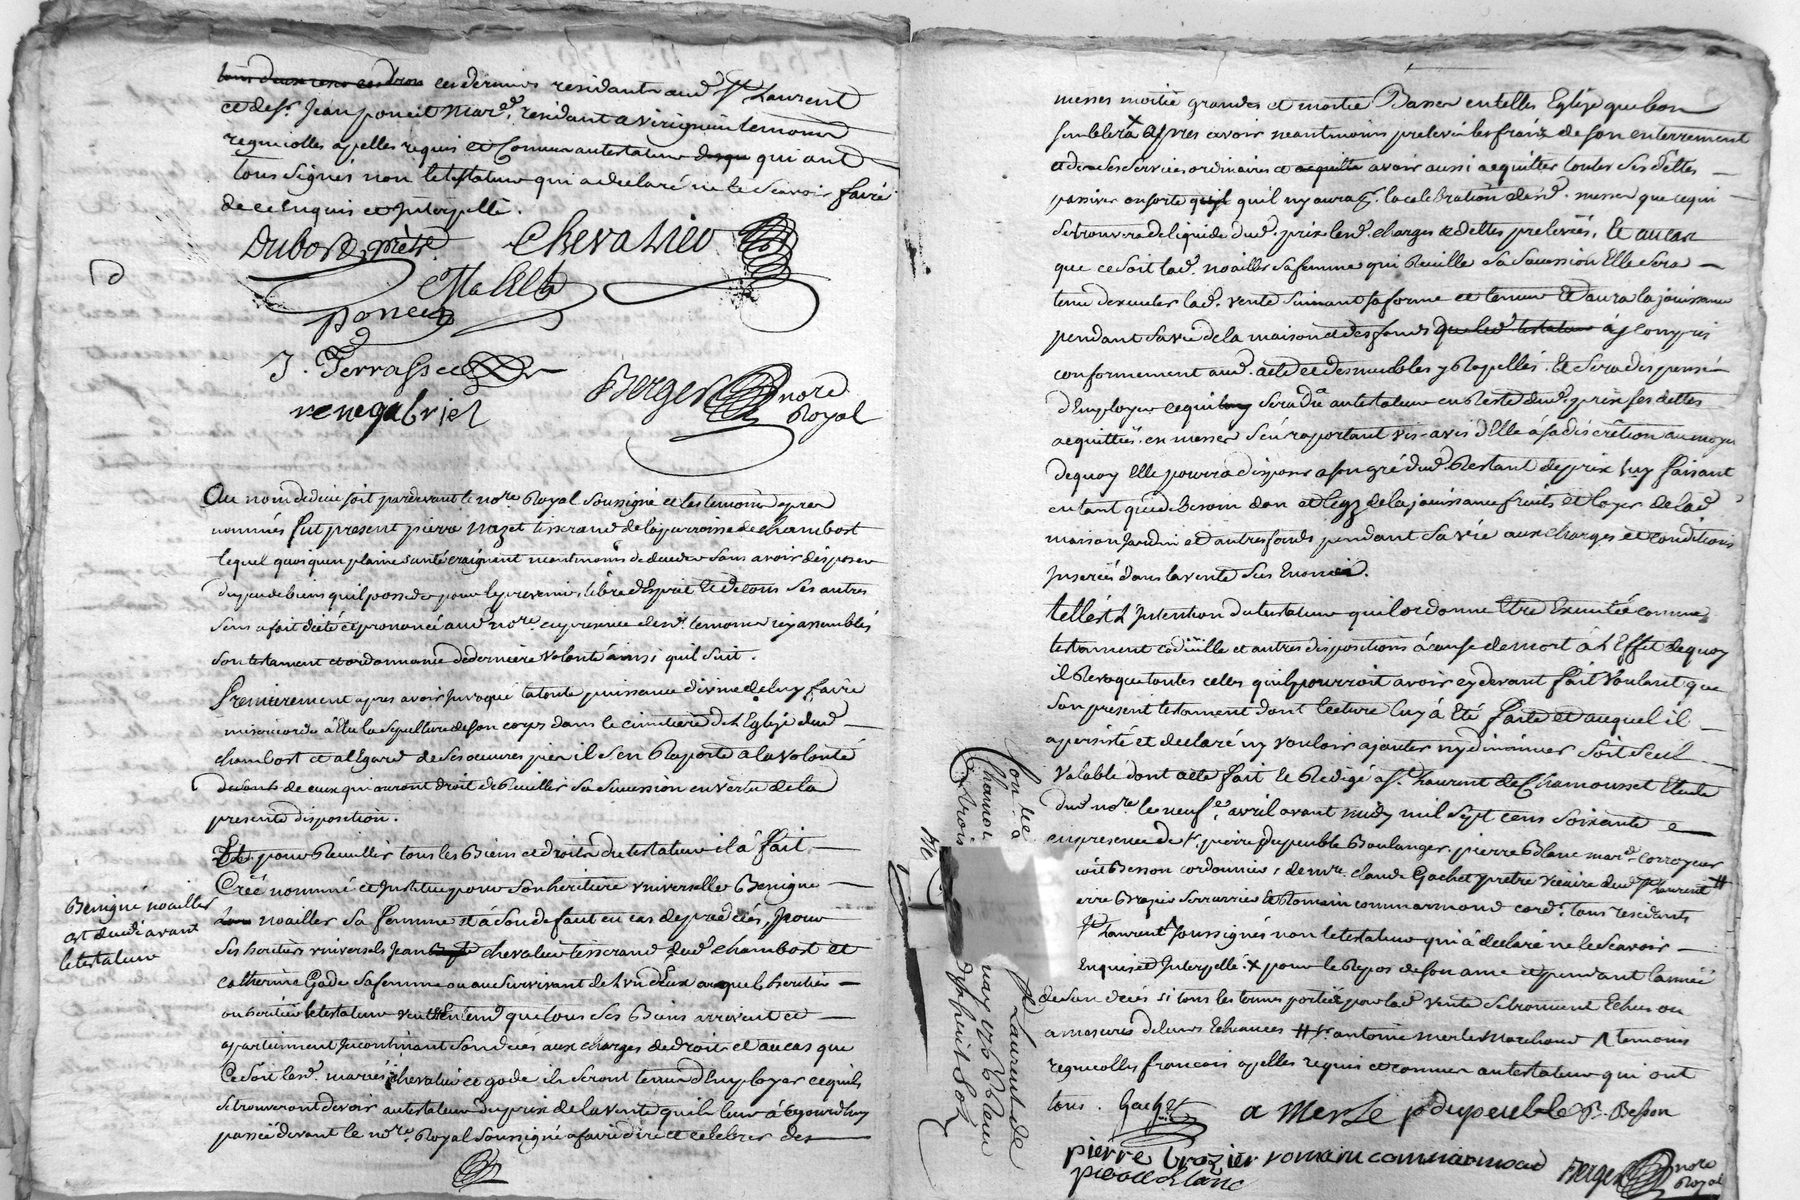 ces derniers residants aud. St Laurent
et de sr. Jean poncet Mard. residant a virigneu temoins
regnicolles apellés requis et Connus au testateur qui ont
tous signés non le testateur qui a declaré ne le scavoir faire
de ce Enquis et Interpellé.
Dubost, mètr. Chevalier
poncet
J. Terrasse
rene gabriel
Berger nore
Royal
Au nom de dieu soit pardevant le nore. Royal soussigné et les temoins apres
nommés fut present pierre mazet tisserand de la parroisse de chambost
lequel quoiqu'en plaine santé craignant neantmoins de deceder sans avoir disposer
du peu de biens qu'il possede pour le prevenir, libre d'Esprit Et de tous ses autres
sens a fait dicté et prononcé aud. nore. en presence desd. temoins icy assemblés
son testament et ordonnance de derniere volonté ainsi quil suit.
Premierement apres avoir Invoqué la toute puissance divine de luy faire
misericorde a Elu la sepulture de son corps dans le cimetiere de L'Eglise dud.
chambost et al'Egard de ses oeuvres pies il s'en Raporte a la volonté
de ceux qui auront droit de Recuillir sa sucession en vertu de la
presente disposition.
Et pour Recuillir tous les Biens et droits du testateur il a fait
Créé nommé et Institué pour son heritiere vniverselle Benigne
noailler sa femme et a son defaut en cas de predeces, pour
Benigne noailler
est decedé avant
le testateur
ses heritiers vniversels Jean chevalier tisserand dud. chambost et
catherine Gode sa femme ou au survivant de L'vn d'Eux auquel heritier
ou heritiere le testateur veut Entend que tous ses Biens arrivent et
apartiennent Incontinant son decés aux charges de droit et au cas que
Ce soit lesd. mariés chevalier et gode ils seront tenus d'Employer ce quils
se trouveront devoir au testateur du prix de la vente qu'il leur a cejourd'huy
passée devant le nore. Royal soussigné a faire dire et celebrer des
messes moitié grandes et moitié Basses en telles Eglise que bon
semblera x apres avoir neantmoins prelever les fraix de son enterrement
et de ses services ordinaires et avoir aussi acquitter toutes ses dettes
passives en sorte qu'il ny aura p. la celebration desd. messes que ce qui
se trouvera de liquide dud. prix lesd. charges et dettes prelevées, Et au cas
que ce soit lad. noailler sa femme qui Recuille sa sucession Elle sera
tenu d'executer lad. vente suivant sa forme et teneur Et aura la jouissance
pendant sa vie de la maison et des fonds à y compris
conformement aud. acte et des meubles y Rapellés. Et sera dispensée
d'Employer ce qui sera dû au testateur en Reste dud. prix ses dettes
acquittées en messes s'en raportant vis-avis d'Elle a sa discrêtion au moyen
de quoy Elle pourra disposer a son gré dud. Restant de prix luy faisant
en tant que de Besoin don et legz de la jouissance fruits et loyer de lad.
maison Jardin et autres fonds pendant sa vie aux charges et conditions
Inserées dans la vente sus Enoncée.
telle est L'Intention du testateur qu'il ordonne Etre Executée comme
testament codicille et autres dispositions à cause de mort à L'Effet de quoy
il Revoque toutes celles qu'il pourroit avoir cy devant fait Voulant que
son present testament dont lecture luy à Eté faite et auquel il
a persisté et declaré ny vouloir ajouter ny diminuer soit seul
valable dont acte fait Et Redigé a St. Laurent de Chamousset Etude
dud. nore. le neufe. avril avant midy mil sept cens soixante
en presence de sr. pierre dupeuble Boulanger, pierre Blanc mard. corroyeur
Besson cordonnier, de mre. claude Gachet pretre vicaire dud. St Laurent #
erre Brazier serrurier Et Romain commarmond cord. tous residents
St Laurent soussignés non le testateur qui à declaré ne le scavoir
Enquis et Interpellé. x pour le Repos de son ame et pendant l'année
de son decés si tous les termes portées pour lad. vente se trouvent Echus ou
a mesures de leurs Echeances # sr. antoine merle Marchand temoins
regnicolles francois apelles requis et connus au testateur qui ont
tous. Gachet a Merle p dupeuble P. Besson
pierre brazier romain commarmond
pierre blanc
Berger nore
Royal